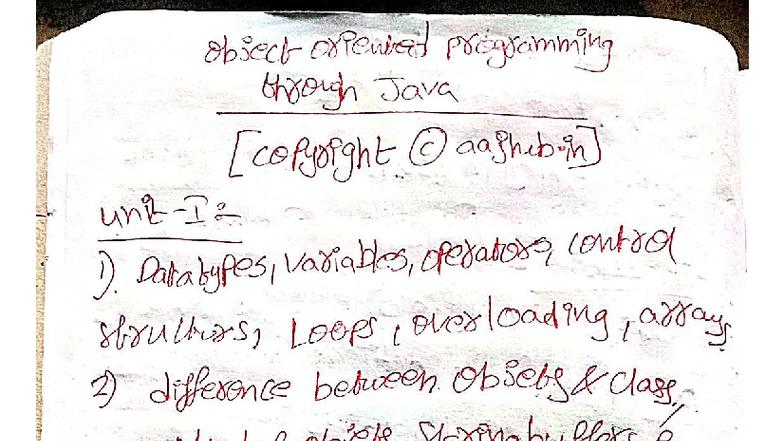 object oriented programming
through Java
[copyright © aajhub.in]
unit-I:-
1). Datatypes, variables, operators, control
structurs, Loops, overloading, arrays
2) difference between objects & class,
objects, stringbuffers &